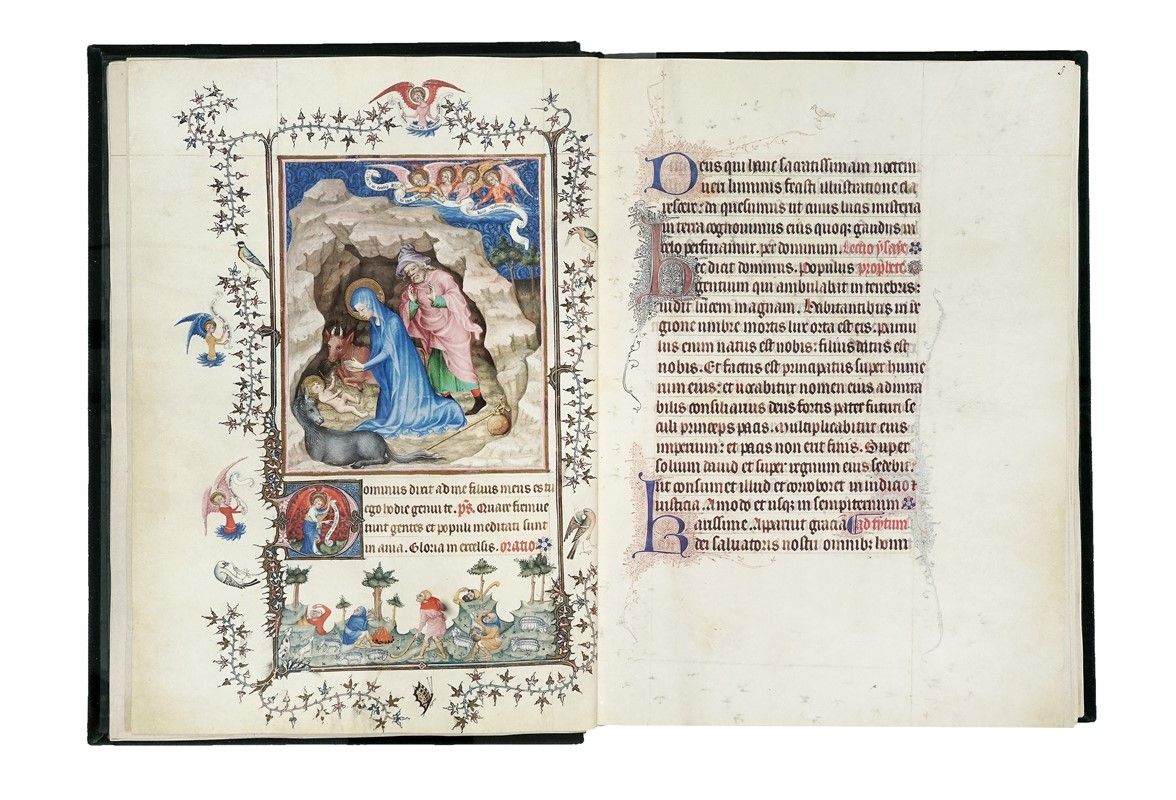 ominus dixit ad me filius meus es tu
ego hodie genui te. ps. Quare fremue
runt gentes et populi meditati sunt
in ania. Gloria in excelsis. oratio
Deus qui hanc sacratissimam noctem
ueri luminis fecisti illustratione cla
rescere: da quesumus ut cuius lucis misteria
in terra cognouimus eius quoq; gaudijs in
celo perfruamur. per dominum. Lectio ysaye
hec dicit dominus. Populus prophete
gentium qui ambulabat in tenebris:
uidit lucem magnam. Habitantibus in re
gione umbre mortis lux orta est eis: paruu
lus enim natus est nobis: filius datus est
nobis. Et factus est principatus super hume
rum eius: et uocabitur nomen eius admira
bilis consiliarius deus fortis pater futuri se
culi princeps pacis. Multiplicabitur eius
imperium: et pacis non erit finis. Super
solium dauid et super regnum eius sedebit:
ut confirmet illud et coroboret in iudicio et
iusticia. Amodo et usq; in sempiternum
Karissime. Aparuit gracia ad tytum
dei saluatoris nostri omnib: homi